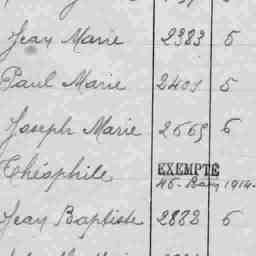 Jean Marie 2383 5
Paul Marie 2401 5
Joseph Marie 2669 5
Théophile EXEMPTÉ
1914
Jean Baptiste 2882 5